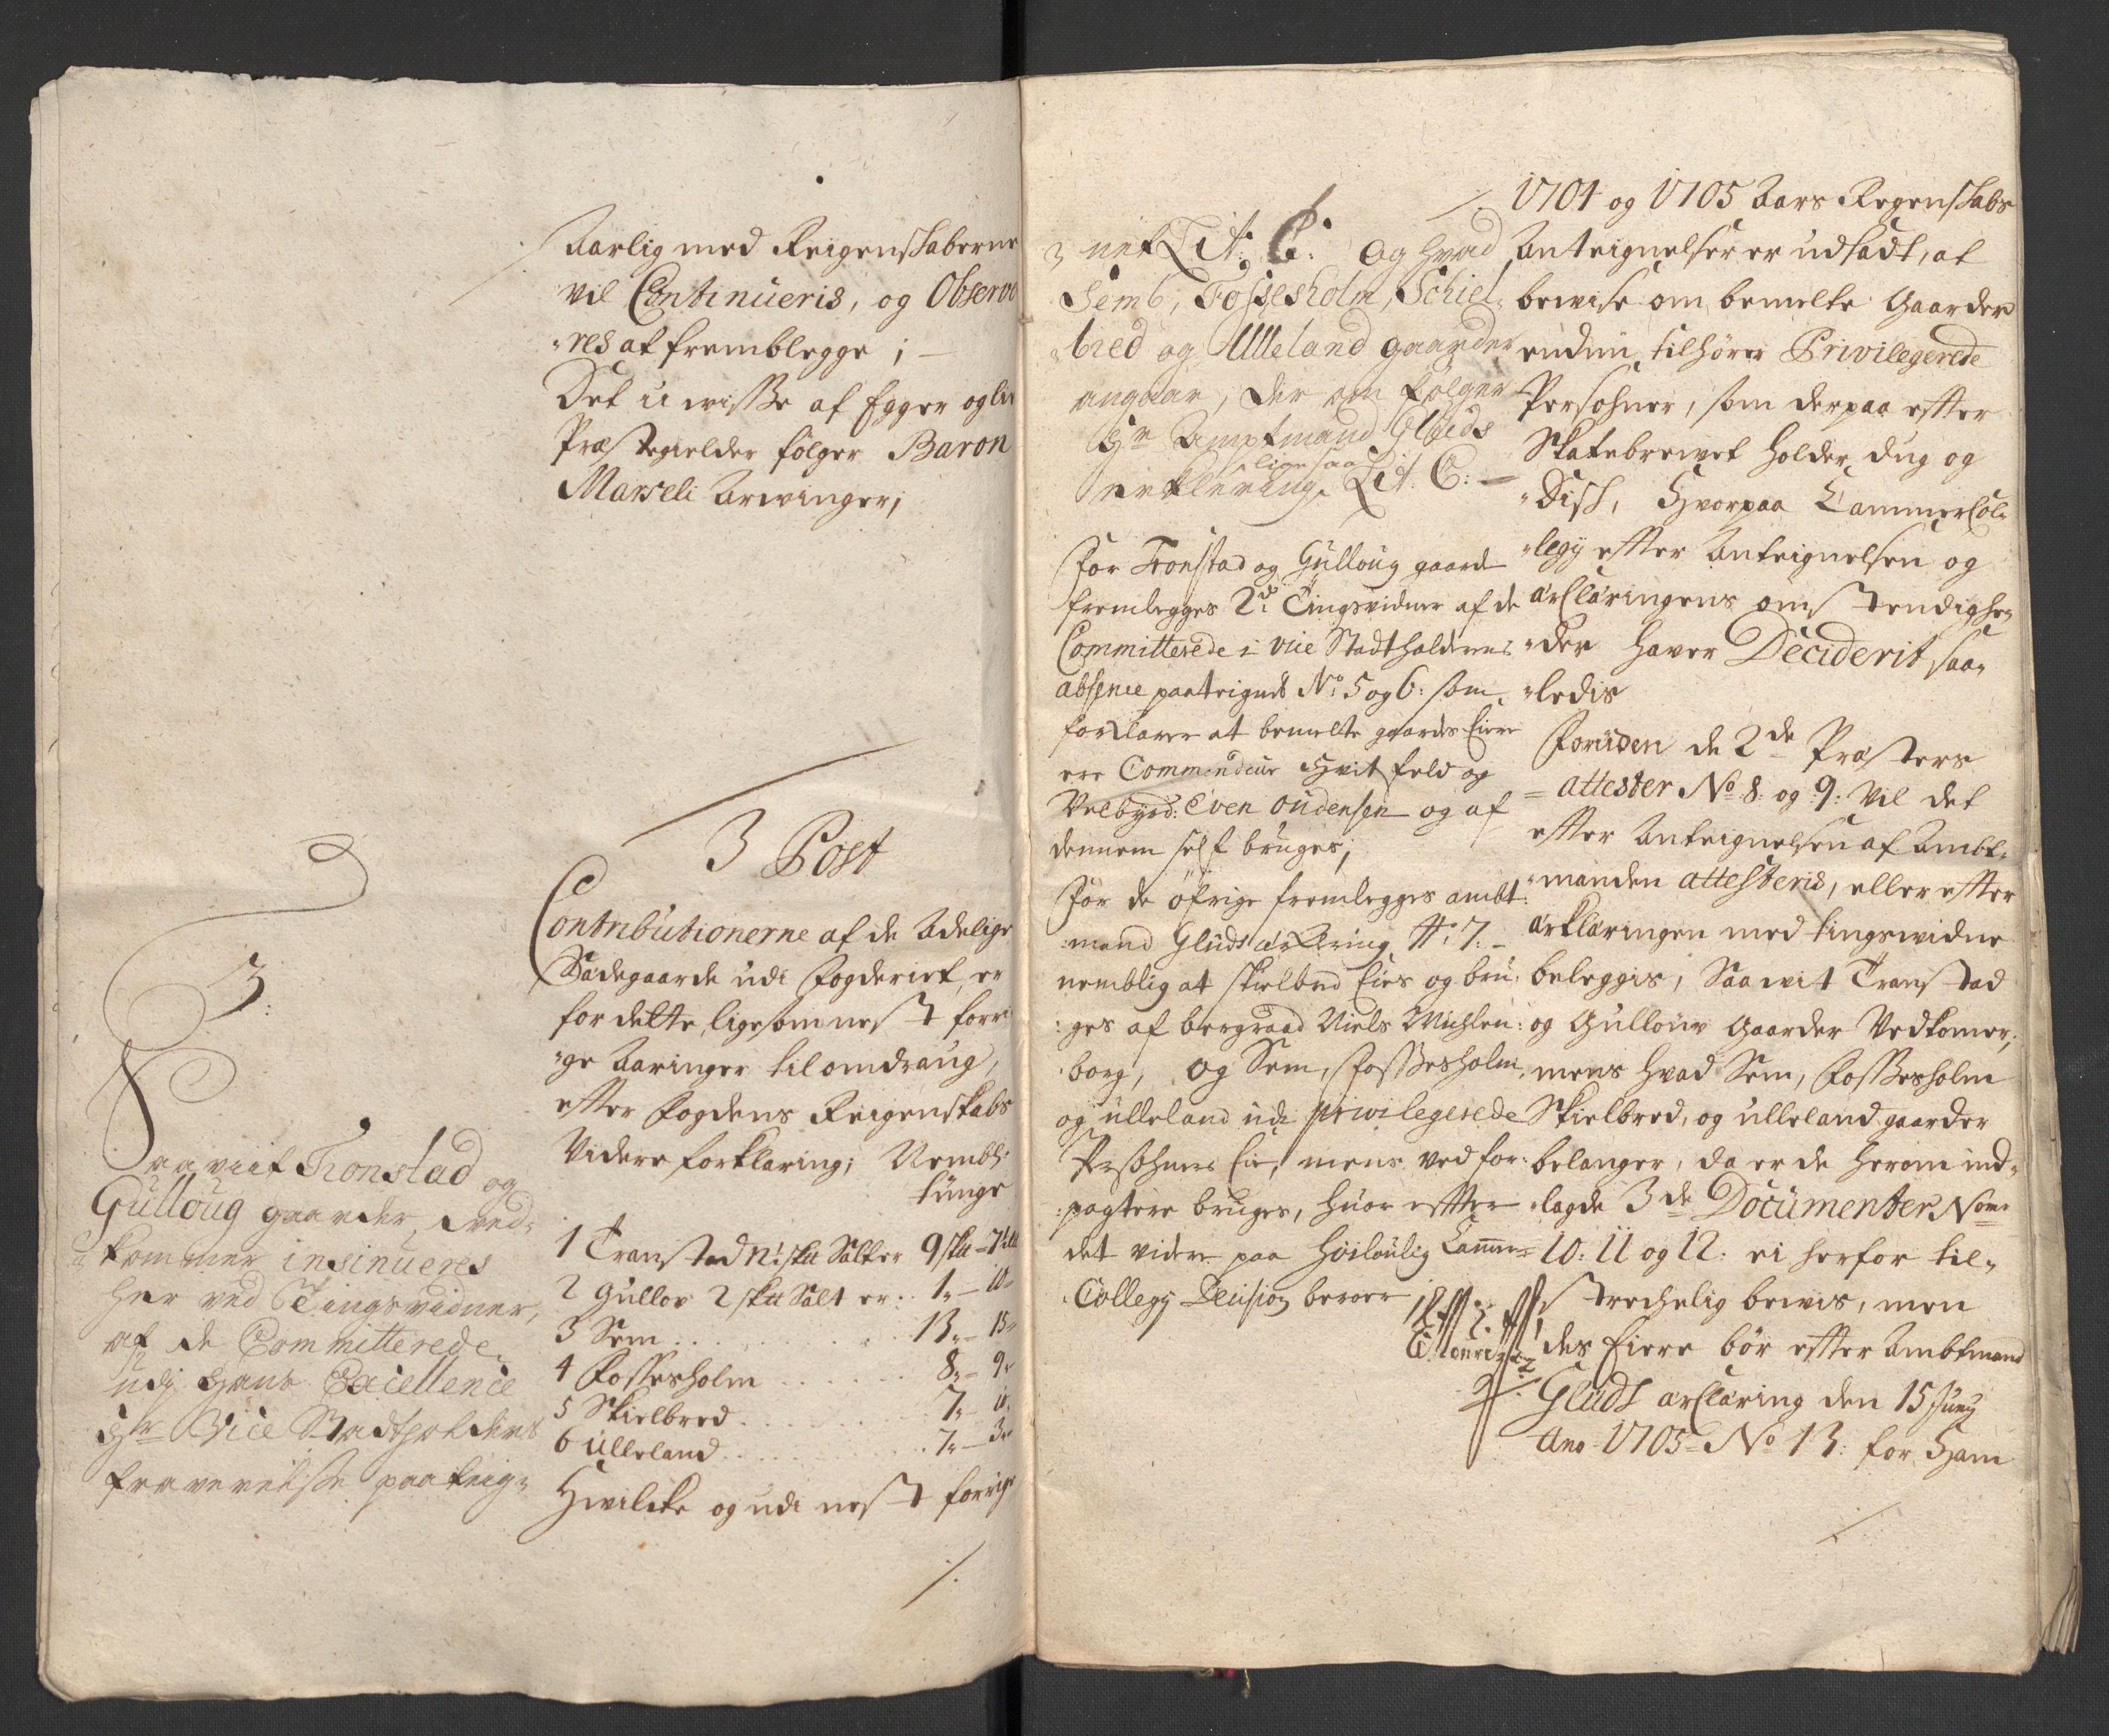 Aarlig med Reigenskaberne
vil Continueris, og Observe
res at fremblegge;
Det u wisse af Egger og
Præstegielder følger Baron
Marseli Arwinger;
3 Post
Contributionerne af de Adelige
Sædegaarde udi Fogderiet, er
for dette, ligesom nest forri
ge Aaringer til omdraug,
efter Fogdens Reigenskabs
Videre forklaring; Nembl:
tunge
1 Transtad n: skll Salt er 9 skll - 7
2 Gullov 2 skll Salt er . . 1 - 10
3 Sem . . . 13 - 15
4 Fossesholm . . . 8 - 9
5 Skielbred . . . 7 -
6 Ulleland . . . 7 - 3
Hwilcke og udi nest forrige
3:
Saa viit Tronstad og
Gulloug gaarder ved-
kommer insinueres
her ved Tingsvidner,
af de Committerede
udj Hans Excellence
Hr Vice Stadtholders
fraverelse paateig-
net Lit: C: Og hvad
Semb, Fossesholm, Schiel-
bred og Ulleland gaarder
angaar, der om følger
Hr Amptmand Gluds
ligesaa
erklering Lit. C: —
For Tronstad og Gulloug gaarde
fremlegges 2de Tingsvidner af de
Committerede i vice Stadtholderens
absence paateignet No 5 og 6: som
forklarer at bemelte gaardes Eiere
ere Commendeur Hvitfeld og
Velbyrd: Even Oudensen og af
dennem self bruges;
For de øfrige fremlegges ambt-
mand Gluds erklering N: 7: -
nemblig at Skielbred Eies og bru-
ges af bergraad Niels Michlen-
borg, og Sem, Fossesholm
og ulleland udi privilegerede
Persohners Eie, mens ved for-
pagtere bruges, huor effter
det videre paa høiloulig Cammer-
Collegy Decision beroer
1704 og 1705 Aars Regenskabs
Anteignelser er udsadt, at
bewise om bemelte Gaarder
endnu tilhører Privilegerede
Persohner, som derpaa effter
Skatebrewet holder Dug og
Disk, Hvorpaa Cammer Col-
legy effter Anteignelsen og
ærklæringens omstendighe-
der haver Deciderit saa-
ledis
Foruden de 2de Præsters
attester No 8: og 9: Vil det
effter Anteignelsen af Ambt-
manden attesteris, eller effter
ærklæringen med tingswidne
beleggis, Saa wit Transtad
og Gullouv Gaarder Vedkomer,
mens hvad Sem, Fossesholm
Skielbred, og ulleland gaarder
belanger, da er de herom ind-
lagde 3de Documenter No
10: 11 og 12: ei herfor til-
strechelig bewis, men
des Eiere bør effter Ambtmand
Gluds ærclæring den 15 Juny
Ano 1705 No 13: for Ham